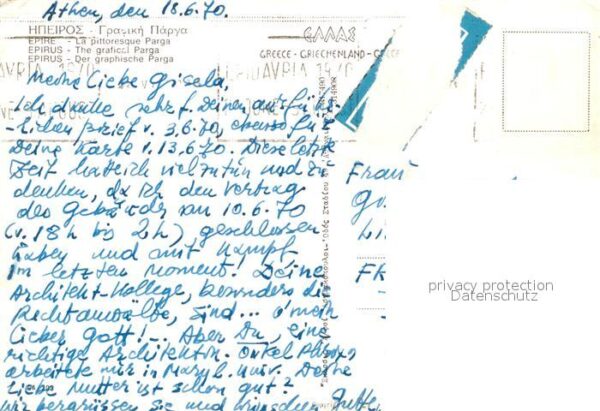 Athen, den 18.6.70.
ΗΠΕΙΡΟΣ - Γραφική Πάργα
EPIRE - La pittoresque Parga
EPIRUS - The grafical Parga
EPIRUS - Der graphische Parga
ΕΛΛΑΣ
GREECE - GRIECHENLAND
Meine liebe Gisela,
Ich danke sehr f. Deinen ausführ-
-lichen Brief v. 3.6.70, ebenso für
Deine Karte v. 13.6.70. Diese letzte
Zeit hatte ich viel zu tun und zu
denken, da ich den Vertrag
des am 10.6.70
(v. 18h bis 2h) geschlossen
haben und mit Kampf
im letzten Moment! Deine
Architekt-Kollege, besonders die
Rechtanwälte, sind ... o mein
lieber Gott! - .. Aber Du, eine
richtige Architektin. Onkel
arbeitete mir in Maryl. Univ. Deine
liebe Mutter ist schon gut?
Wir begrüssen sie und wünschen
Frau
privacy protection
Datenschutz